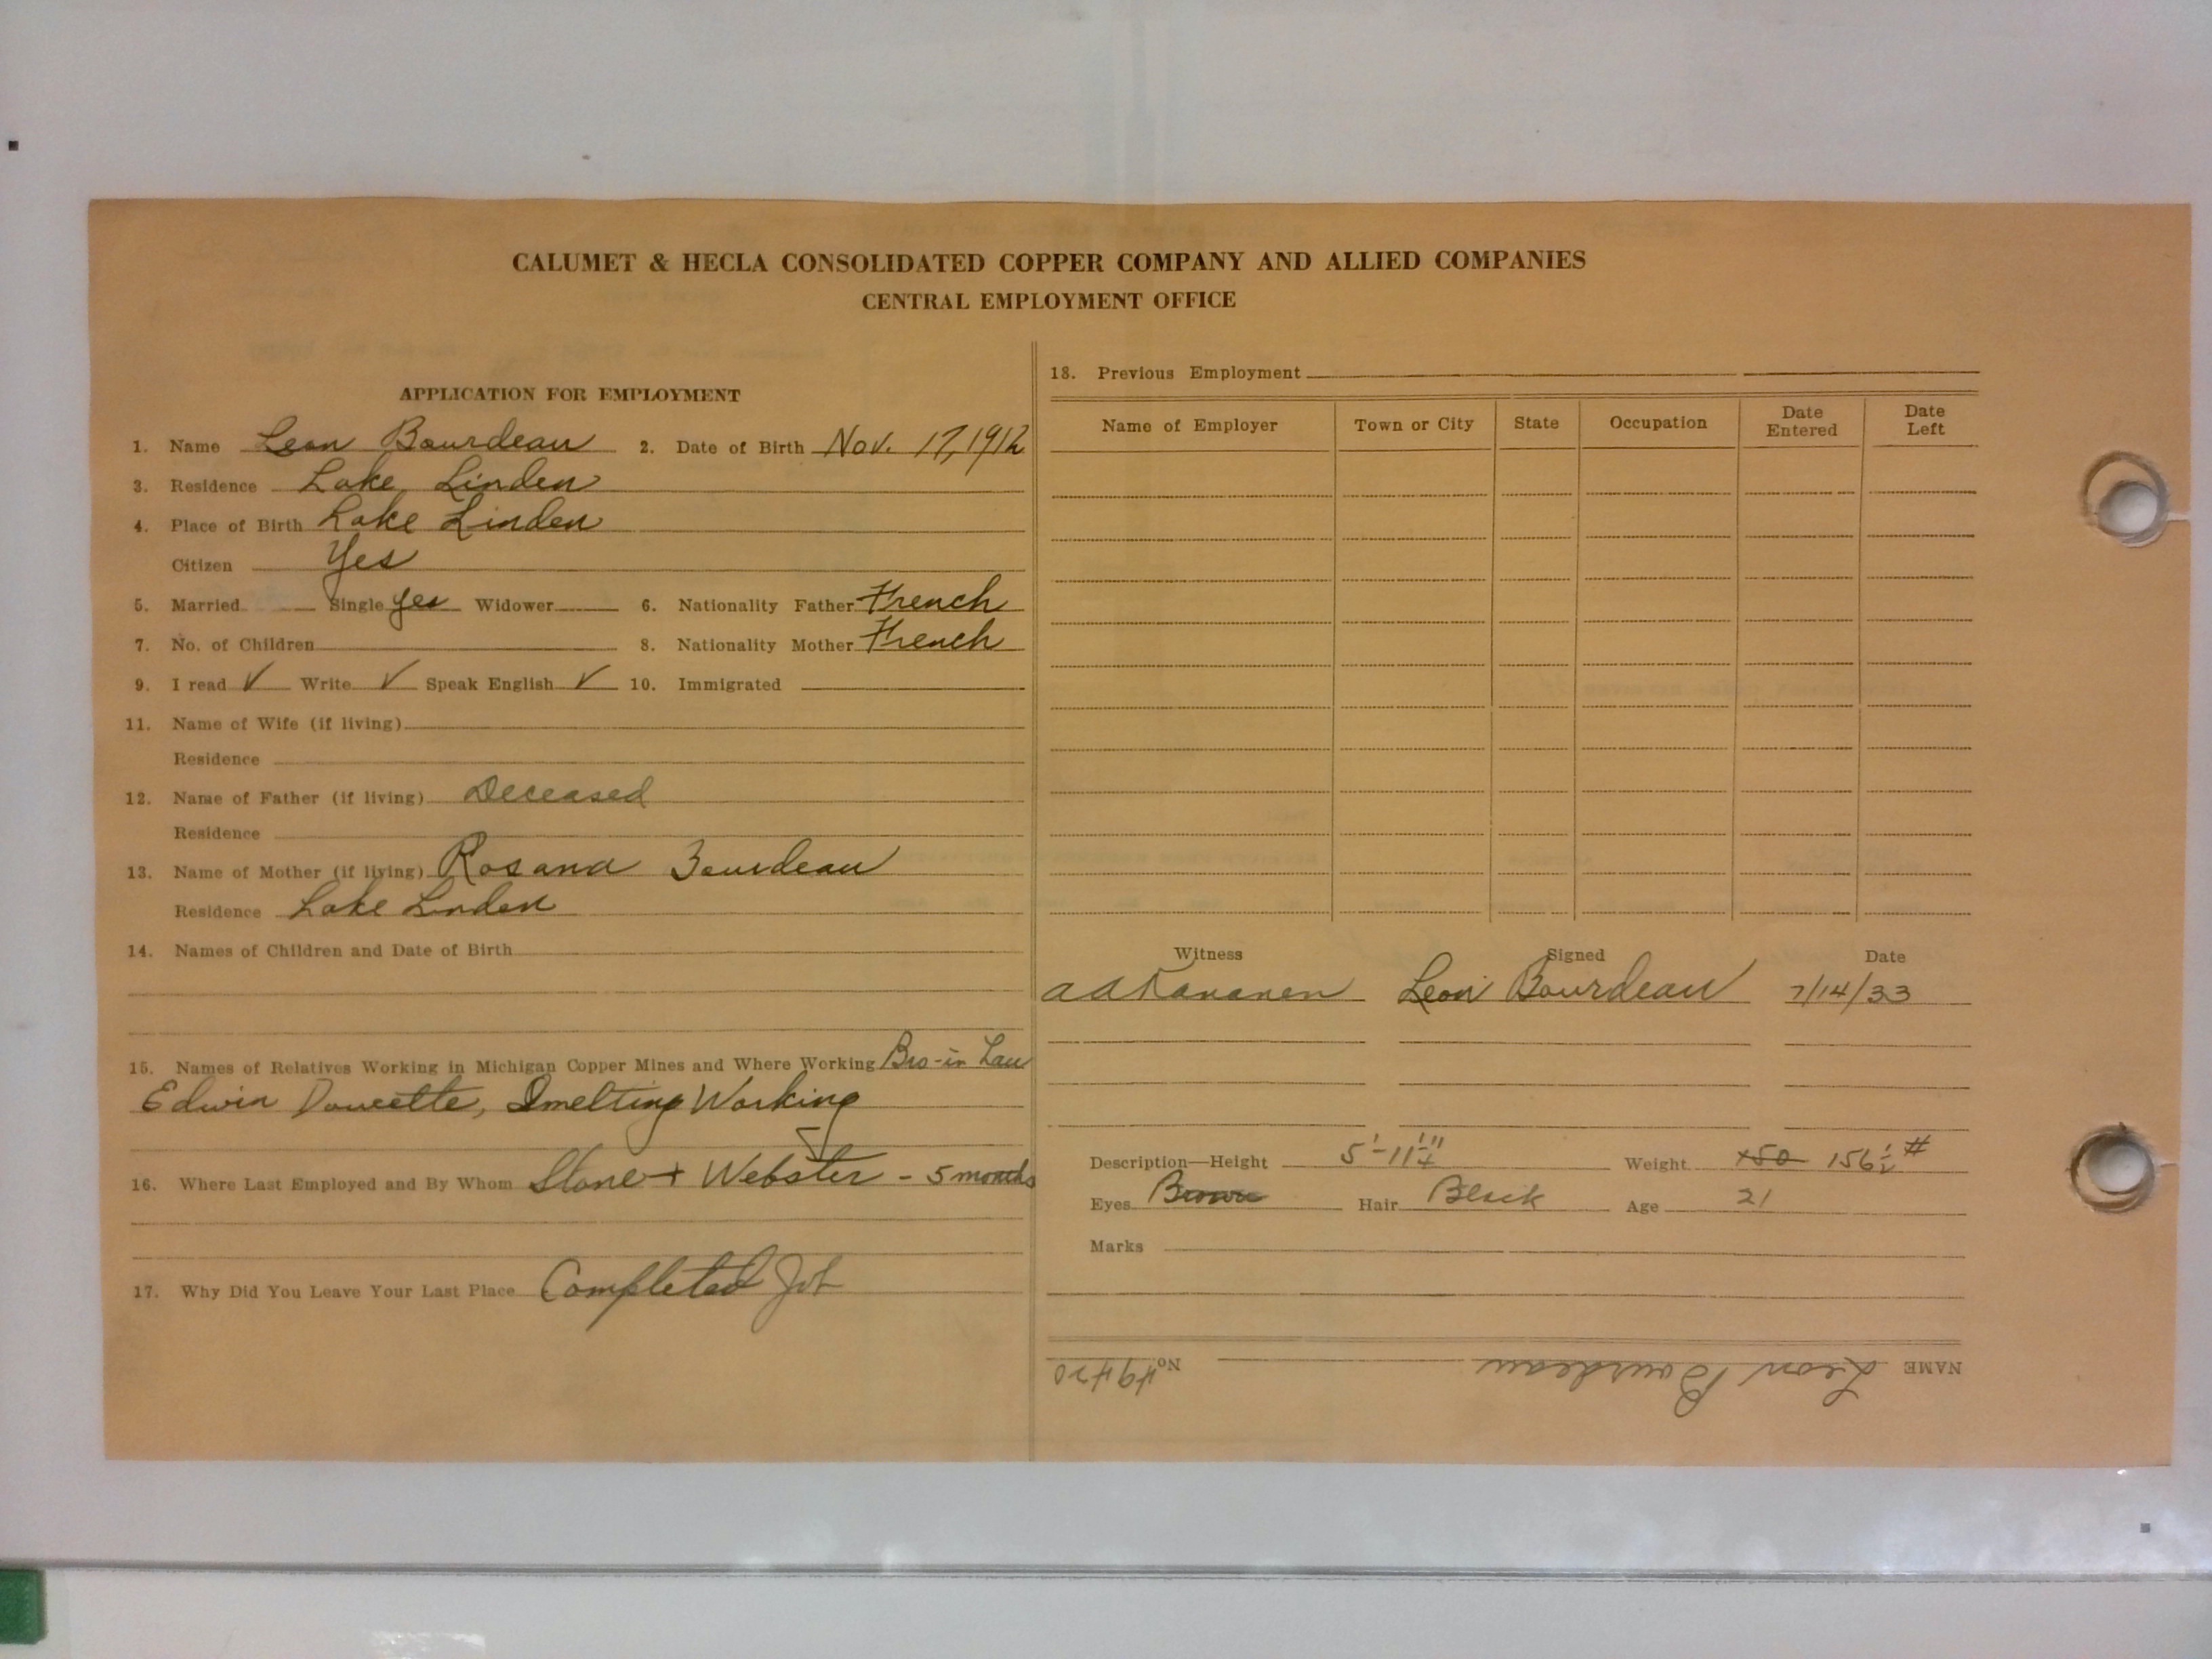 CALUMET & HECLA CONSOLIDATED COPPER COMPANY AND ALLIED COMPANIES
CENTRAL EMPLOYMENT OFFICE
APPLICATION FOR EMPLOYMENT
1. Name Leon Bourdeau 2. Date of Birth Nov. 17, 1912
3. Residence Lake Linden
4. Place of Birth Lake Linden
Citizen Yes
5. Married Single yes Widower 6. Nationality Father French
7. No. of Children 8. Nationality Mother French
9. I read ✓ Write ✓ Speak English ✓ 10. Immigrated
11. Name of Wife (if living)
Residence
12. Name of Father (if living) Deceased
Residence
13. Name of Mother (if living) Rosana Bourdeau
Residence Lake Linden
14. Names of Children and Date of Birth
15. Names of Relatives Working in Michigan Copper Mines and Where Working Bro-in Law
Edwin Doucette, Smelting Working
16. Where Last Employed and By Whom Stone + Webster - 5 months
17. Why Did You Leave Your Last Place Completed Job
18. Previous Employment
Name of Employer Town or City State Occupation Date Entered Date Left
Witness Signed Date
Leon Bourdeau 7/14/33
Description—Height 5'-11¼" Weight 150 156½ #
Eyes Brown Hair Black Age 21
Marks
NAME Leon Bourdeau No. 49420